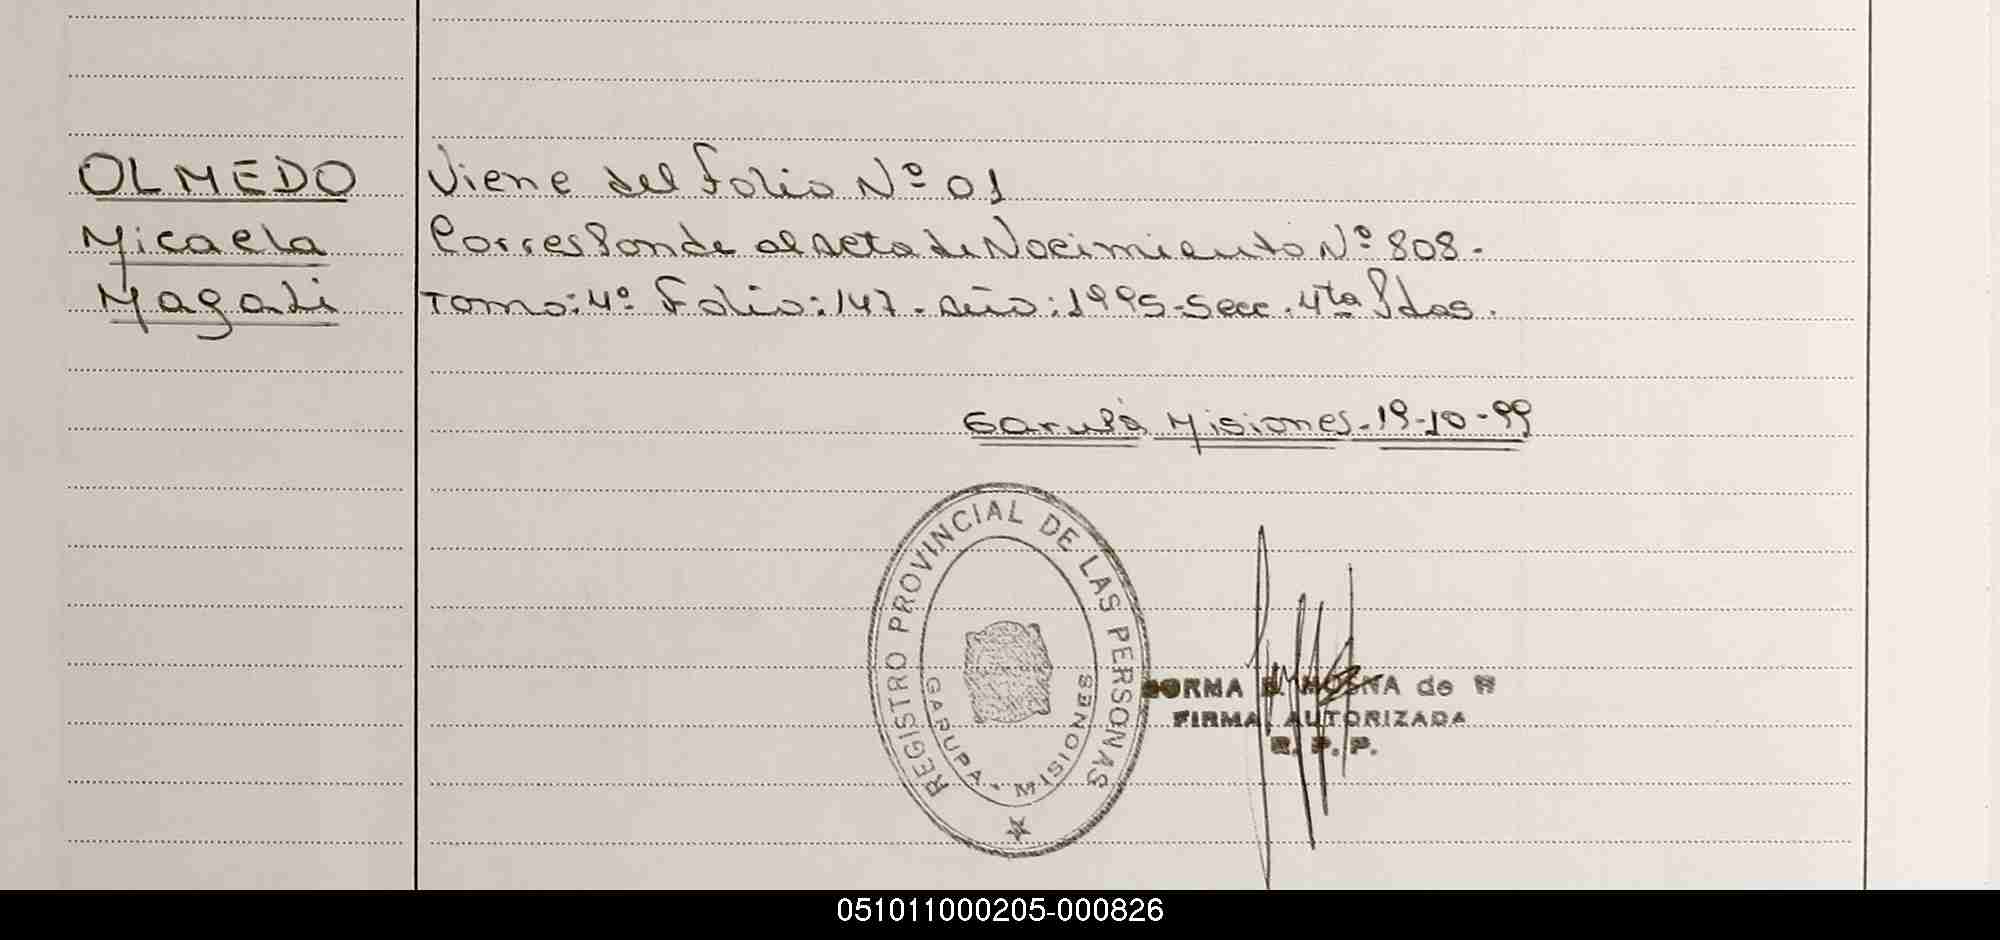 OLMEDO
Micaela
Magali
Viene del Folio Nº 01
Corresponde al acta de Nacimiento Nº 808.
Tomo: 4º Folio: 147. Año: 1995. Secc. 4ta Pdas.
Garupá Misiones. 19-10-99
REGISTRO PROVINCIAL DE LAS PERSONAS
GARUPA - MISIONES
NORMA de
FIRMA AUTORIZADA
R. P. P.
051011000205-000826